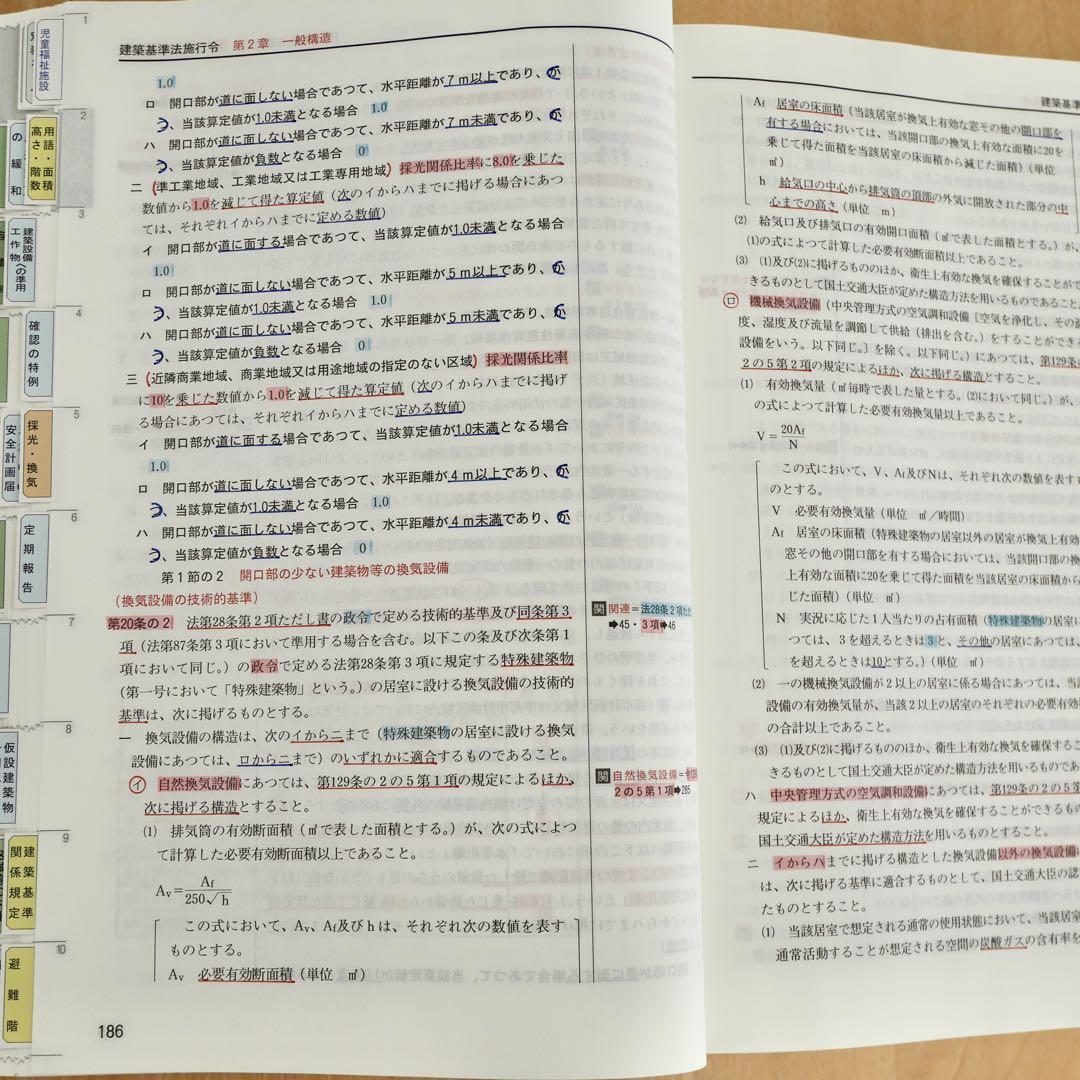 児童福祉施設
2
用語・面積
高さ・階数
の緩和
3
建築設備
工作物への準用
4
確認の特例
5
採光・換気
安全計画届
6
定期報告
7
8
仮設建築物
9
建築基準
関係規定
10
避難階
建築基準法施行令 第2章 一般構造
1.0
ロ 開口部が道に面しない場合であつて、水平距離が7m以上であり、か
つ、当該算定値が1.0未満となる場合 1.0
ハ 開口部が道に面しない場合であつて、水平距離が7m未満であり、か
つ、当該算定値が負数となる場合 0
二 (準工業地域、工業地域又は工業専用地域) 採光関係比率に8.0を乗じた
数値から1.0を減じて得た算定値(次のイからハまでに掲げる場合にあつ
ては、それぞれイからハまでに定める数値)
イ 開口部が道に面する場合であつて、当該算定値が1.0未満となる場合
1.0
ロ 開口部が道に面しない場合であつて、水平距離が5m以上であり、か
つ、当該算定値が1.0未満となる場合 1.0
ハ 開口部が道に面しない場合であつて、水平距離が5m未満であり、か
つ、当該算定値が負数となる場合 0
三 (近隣商業地域、商業地域又は用途地域の指定のない区域) 採光関係比率
に10を乗じた数値から1.0を減じて得た算定値(次のイからハまでに掲げ
る場合にあつては、それぞれイからハまでに定める数値)
イ 開口部が道に面する場合であつて、当該算定値が1.0未満となる場合
1.0
ロ 開口部が道に面しない場合であつて、水平距離が4m以上であり、か
つ、当該算定値が1.0未満となる場合 1.0
ハ 開口部が道に面しない場合であつて、水平距離が4m未満であり、か
つ、当該算定値が負数となる場合 0
第1節の2 開口部の少ない建築物等の換気設備
(換気設備の技術的基準)
第20条の2 法第28条第2項ただし書の政令で定める技術的基準及び同条第3
項(法第87条第3項において準用する場合を含む。以下この条及び次条第1
項において同じ。)の政令で定める法第28条第3項に規定する特殊建築物
(第一号において「特殊建築物」という。)の居室に設ける換気設備の技術的
基準は、次に掲げるものとする。
一 換気設備の構造は、次のイからニまで(特殊建築物の居室に設ける換気
設備にあつては、ロからニまで)のいずれかに適合するものであること。
イ 自然換気設備にあつては、第129条の2の5第1項の規定によるほか、
次に掲げる構造とすること。
(1) 排気筒の有効断面積(㎡で表した面積とする。)が、次の式によつ
て計算した必要有効断面積以上であること。
Av=Af/250√h
この式において、Av、Af及びhは、それぞれ次の数値を表す
ものとする。
Av 必要有効断面積(単位 ㎡)
関 関連=法28条2項ただ
➡45・3項➡46
関 自然換気設備=
2の5第1項➡285
186
建築基準
Af 居室の床面積(当該居室が換気上有効な窓その他の開口部を
有する場合においては、当該開口部の換気上有効な面積に20を
乗じて得た面積を当該居室の床面積から減じた面積)(単位
㎡)
h 給気口の中心から排気筒の頂部の外気に開放された部分の中
心までの高さ(単位 m)
(2) 給気口及び排気口の有効開口面積(㎡で表した面積とする。)が、
(1)の式によつて計算した必要有効断面積以上であること。
(3) (1)及び(2)に掲げるもののほか、衛生上有効な換気を確保することがで
きるものとして国土交通大臣が定めた構造方法を用いるものであること
ロ 機械換気設備(中央管理方式の空気調和設備〔空気を浄化し、その温
度、湿度及び流量を調節して供給(排出を含む。)をすることができる
設備をいう。以下同じ。〕を除く。以下同じ。)にあつては、第129条の
2の5第2項の規定によるほか、次に掲げる構造とすること。
(1) 有効換気量(㎥毎時で表した量とする。(2)において同じ。)が、
の式によつて計算した必要有効換気量以上であること。
V=20Af/N
この式において、V、Af及びNは、それぞれ次の数値を表す
のとする。
V 必要有効換気量(単位 ㎥/時間)
Af 居室の床面積(特殊建築物の居室以外の居室が換気上有効
窓その他の開口部を有する場合においては、当該開口部の換
上有効な面積に20を乗じて得た面積を当該居室の床面積から
じた面積)(単位 ㎡)
N 実況に応じた1人当たりの占有面積(特殊建築物の居室に
つては、3を超えるときは3と、その他の居室にあつては、
を超えるときは10とする。)(単位 ㎡)
(2) 一の機械換気設備が2以上の居室に係る場合にあつては、当
設備の有効換気量が、当該2以上の居室のそれぞれの必要有効
の合計以上であること。
(3) (1)及び(2)に掲げるもののほか、衛生上有効な換気を確保するこ
きるものとして国土交通大臣が定めた構造方法を用いるものであ
ハ 中央管理方式の空気調和設備にあつては、第129条の2の5第
規定によるほか、衛生上有効な換気を確保することができるもの
国土交通大臣が定めた構造方法を用いるものとすること。
ニ イからハまでに掲げる構造とした換気設備以外の換気設備に
は、次に掲げる基準に適合するものとして、国土交通大臣の認
たものとすること。
(1) 当該居室で想定される通常の使用状態において、当該居室
通常活動することが想定される空間の炭酸ガスの含有率を